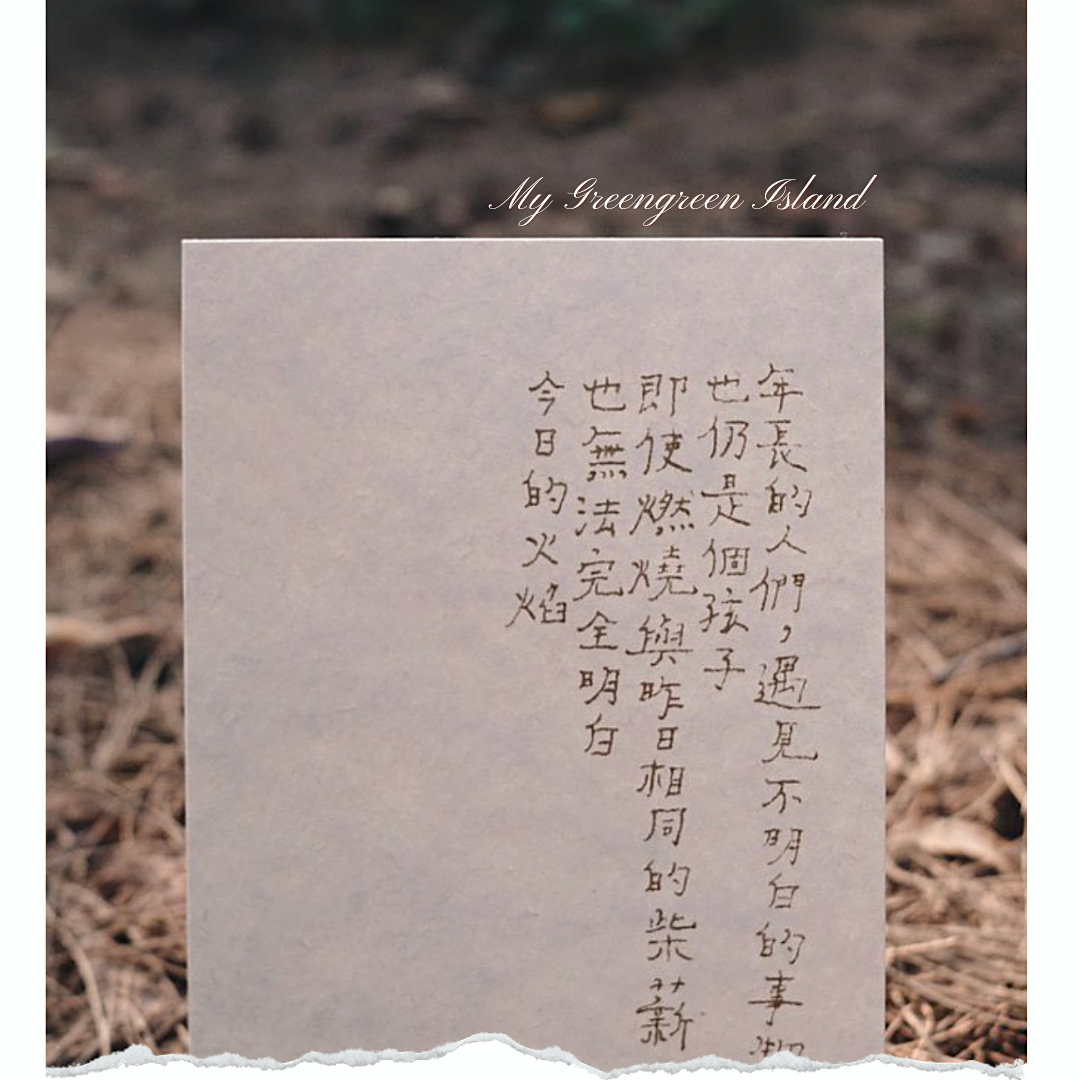 My Greengreen Island
年長的人們，遇見不明白的事
也仍是個孩子
即使燃燒與昨日相同的柴薪
也無法完全明白
今日的火焰